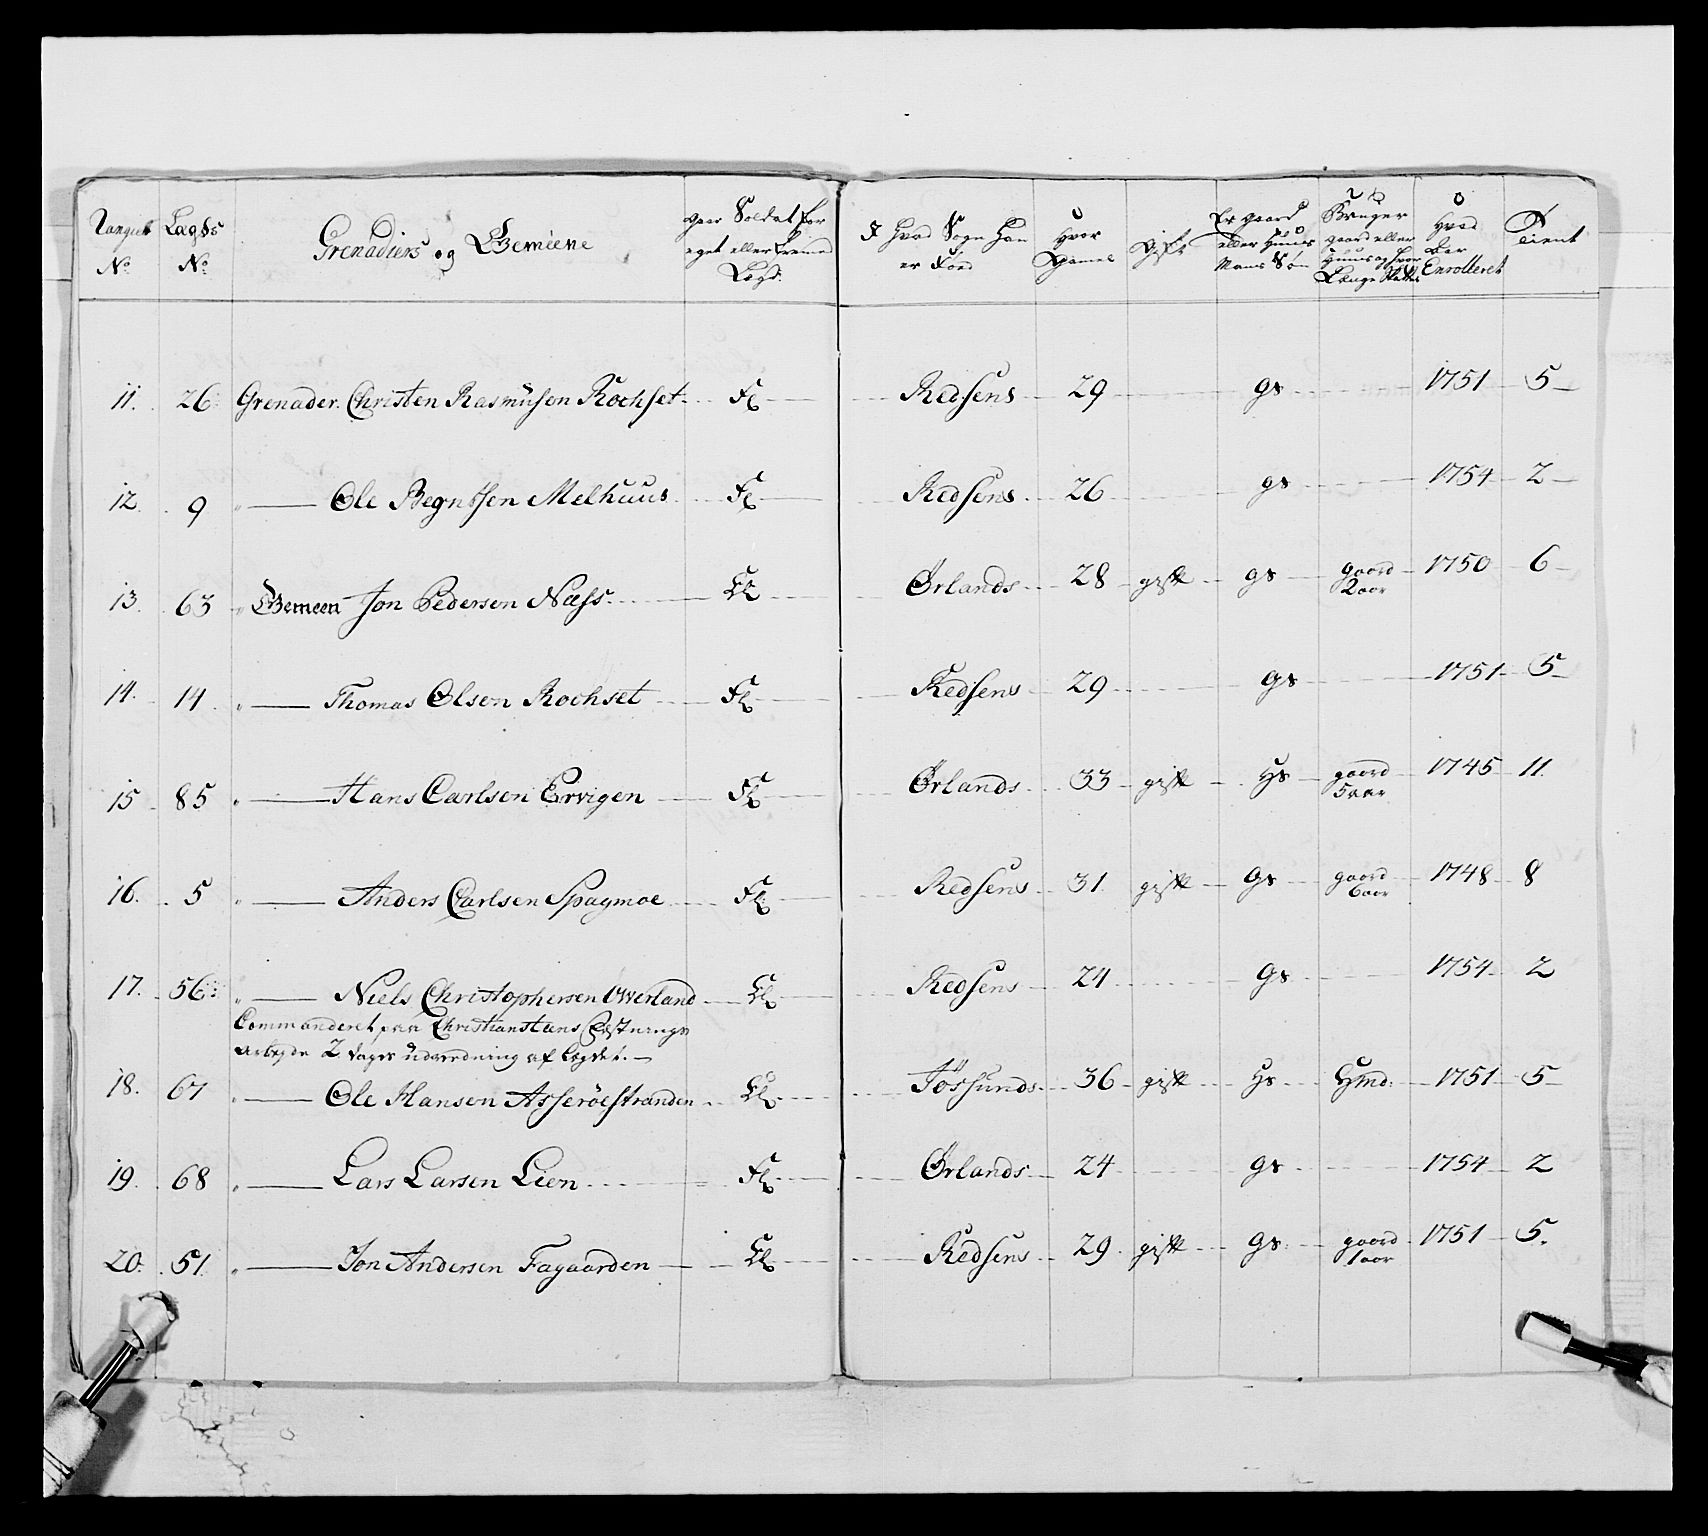 Lægds No
Grenadiers og Gemeene
gaar Soldat for eget eller fremd Lægd
I Hvad Sogn Han er Föed
Hvor Gamel
Gift
Er gaard eller Huus Mands Søn
Bruger gaard eller Huus og hvor Længe
Hvad Aar Enrolleret
Tient
11. 26 Grenader. Christen Rasmusen Rochset Fl Redsens 29 gs 1751 5
12. 9 " Ole Begntsen Melhuus Fl Redsens 26 gs 1754 2
13. 63 " Gemeen Jon Pedersen Næss El Örlands 28 gift gs gaard 2 aar 1750 6
14. 14 " Thomas Olsen Rochset Fl Redsens 29 gs 1751 5
15 85 " Hans Carlsen Ervigen Fl Örlands 33 gift Hs gaard 5 aar 1745 11
16. 5 " Anders Carlsen Spagmoe Fl Redsens 31 gift gs gaard 6 aar 1748 8
17. 56 " Niels Christophersen Owerland El Redsens 24 gs 1754 2
Commanderet paa Christianstens Fæstnings
Arbejde 2 dages udreedning af Legdet.
18. 67 " Ole Hansen Asseröestranden El Jössunds 36 gift Hs Hmd: 1751 5
19. 68 " Lars Larsen Lien Fl Örlands 24 gs 1754 2
20. 51 " Jon Andersen Fagaarden El Redsens 29 gift gs gaard 1 aar 1751 5.